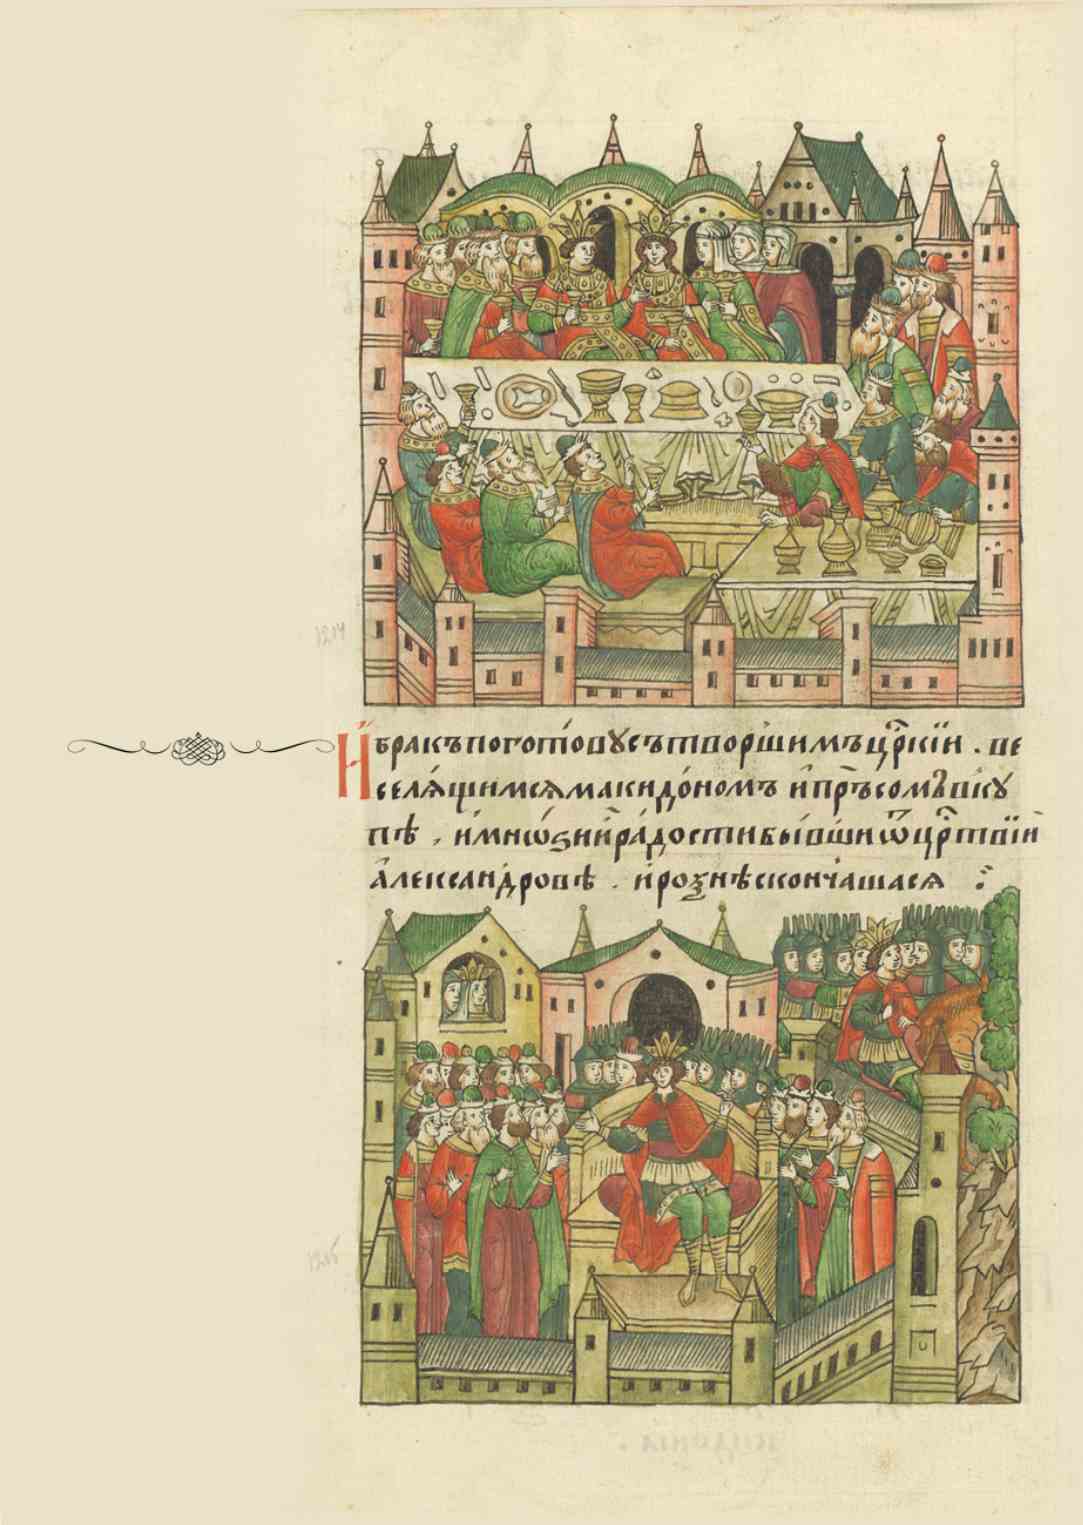 И҆бракъпоготовꙋсътворшимъцр҃кїи . ве
селѧщимсѧмакидо́номъ и҆пръсомъвкꙋ
пѣ , имнѡѕии҆ра́достибы́вшиѿцр҃твїи
а҆леѯа́ндровѣ . и҆розн҃ѣскончашасѧ